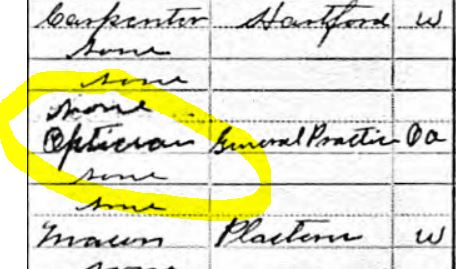 Carpenter Hartford W
none
none
none
Optician General Practice Oa
none
none
Mason Plasterer W
none